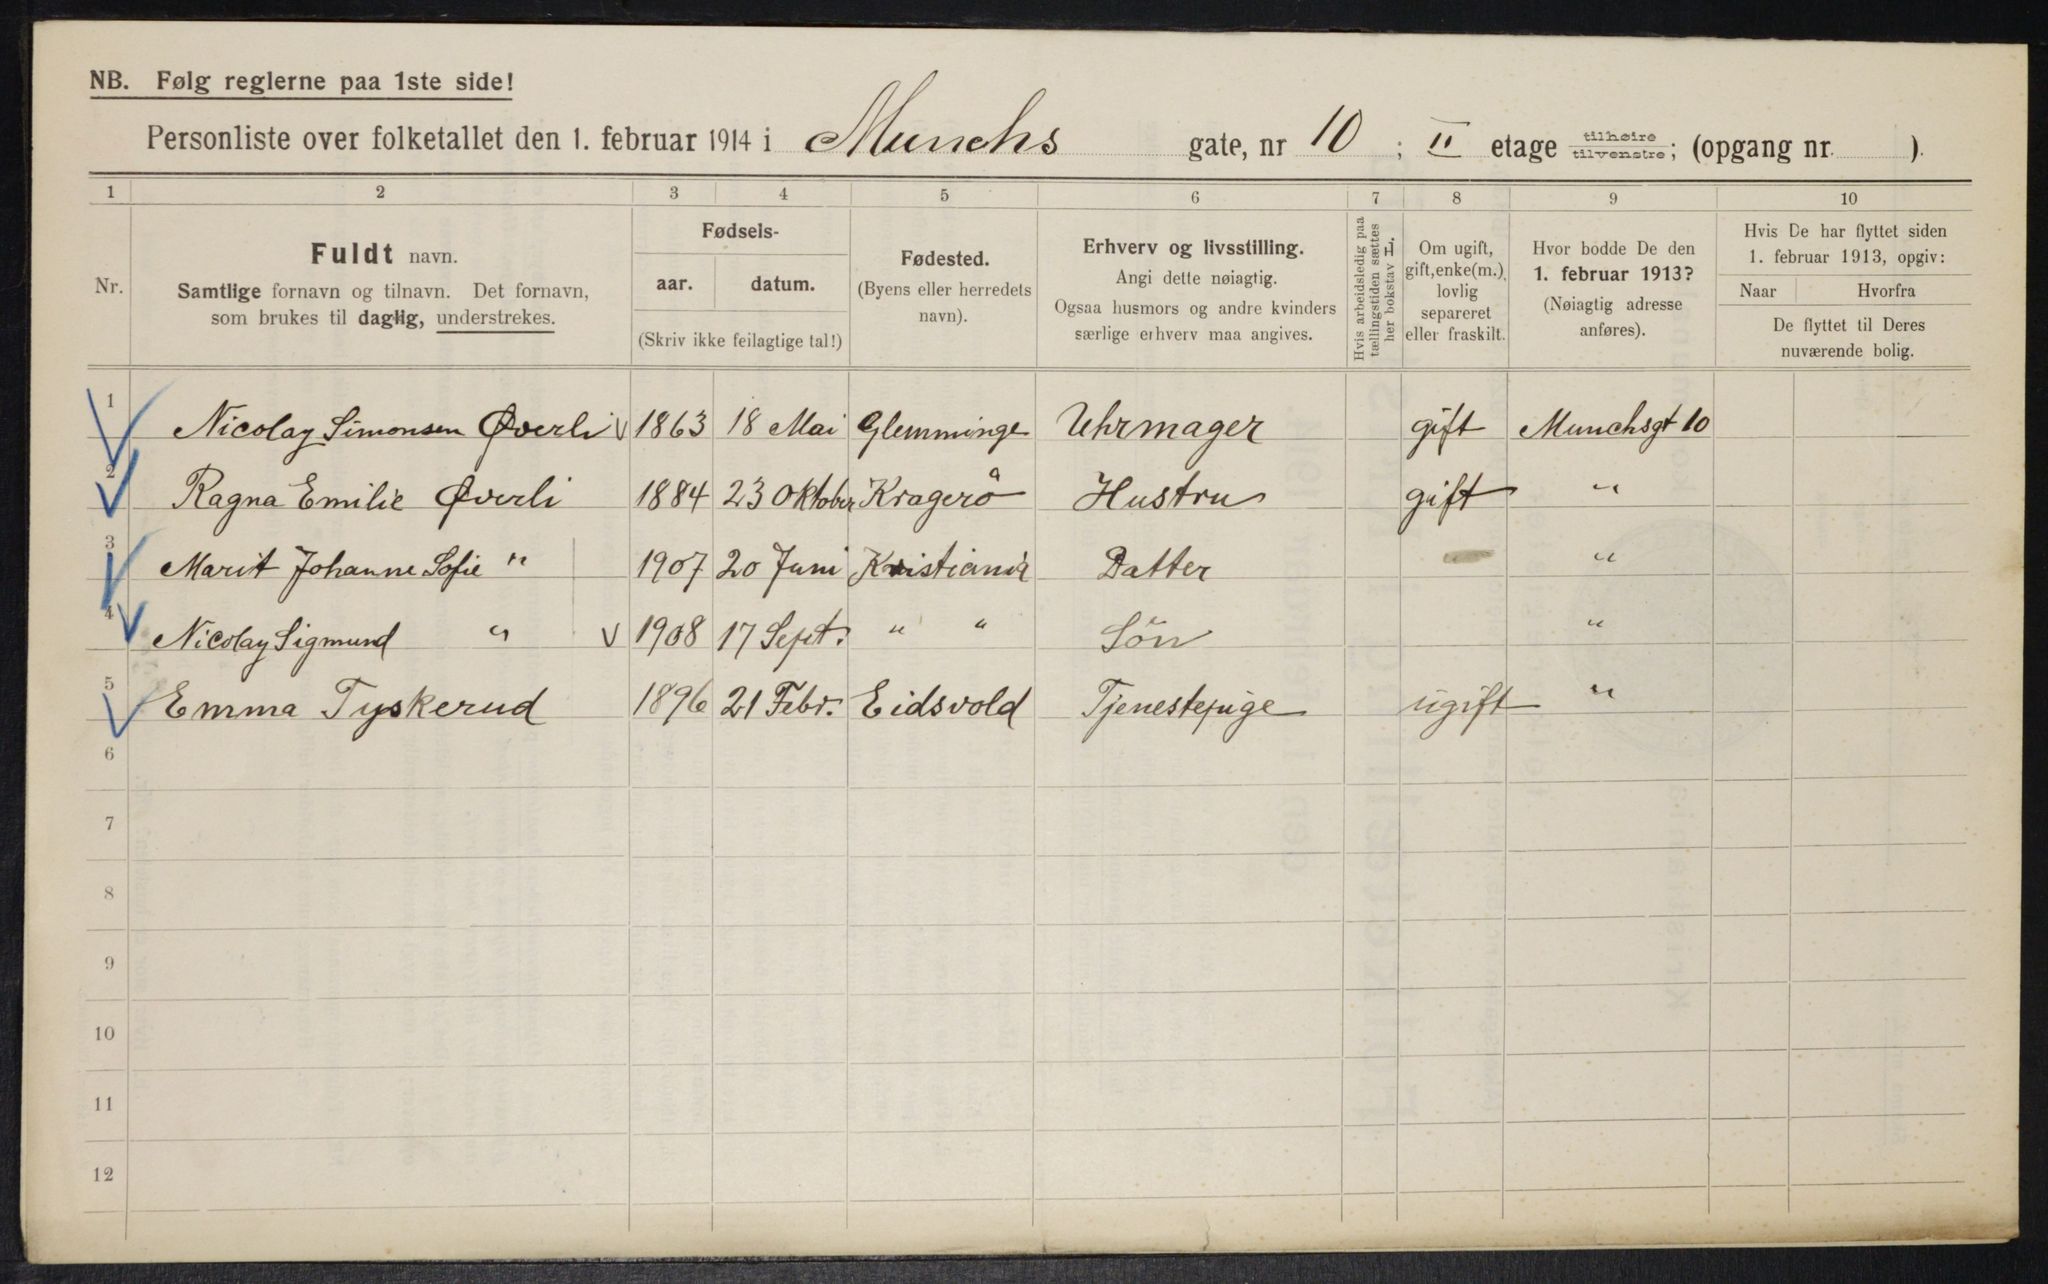 NB. Følg reglerne paa 1ste side!
Personliste over folketallet den 1. februar 1914 i Munchs gate, nr 10 ; II etage tilhøire tilvenstre; (opgang nr. ).
1 2 3 4 5 6 7 8 9 10
Nr.
Fuldt navn.
Samtlige fornavn og tilnavn. Det fornavn,
som brukes til daglig, understrekes.
Fødsels-
aar. datum.
(Skriv ikke feilagtige tal!)
Fødested.
(Byens eller herredets
navn).
Erhverv og livsstilling.
Angi dette nøiagtig.
Ogsaa husmors og andre kvinders
særlige erhverv maa angives.
Hvis arbeidsledig paa
tællingstiden sættes
her bokstav L.
Om ugift,
gift, enke(m.),
lovlig
separeret
eller fraskilt.
Hvor bodde De den
1. februar 1913?
(Nøiagtig adresse
anføres).
Hvis De har flyttet siden
1. februar 1913, opgiv:
Naar Hvorfra
De flyttet til Deres
nuværende bolig.
1 Nicolay Simonsen Øverli 1863 18 Mai Glemminge Uhrmager gift Munchsgt 10
2 Ragna Emilie Øverli 1884 23 Oktober Kragerö Hustru gift "
3 Marit Johanne Sofie " 1907 20 Juni Kristiania Datter "
4 Nicolay Sigmund " 1908 17 Sept. " " Sön "
5 Emma Tyskerud 1896 21 Febr. Eidsvold Tjenestepige ugift "
6
7
8
9
10
11
12